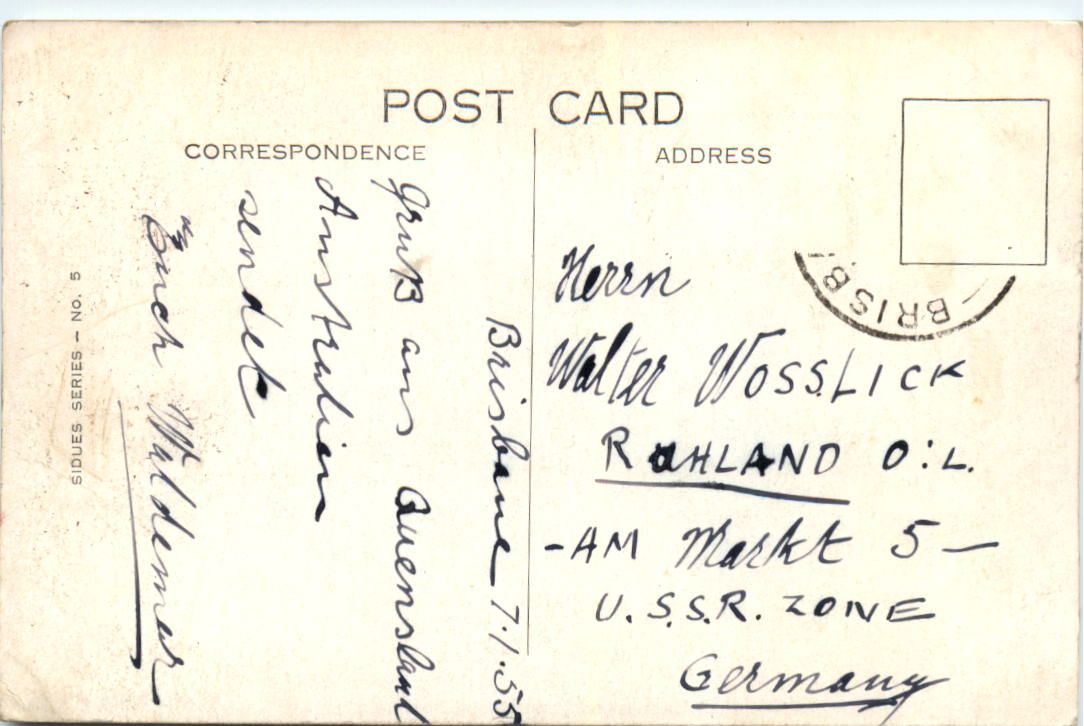 POST CARD
CORRESPONDENCE
ADDRESS
SIDUES SERIES — NO. 5
BRISB
Brisbane 7.1.55
Gruß aus Queensland
Australien
sendet
Euch Waldemar
Herrn
Walter WOSSLICK
RUHLAND O:L.
-AM Markt 5-
U.S.S.R. ZONE
Germany